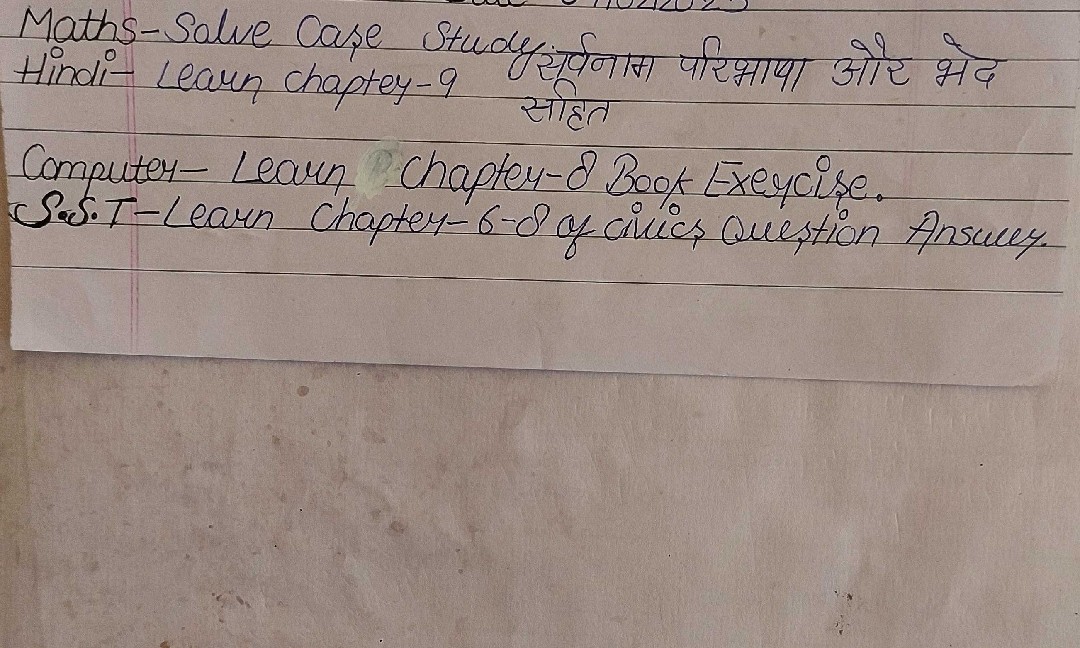 Maths-Solve Case Study.
Hindi- Learn chapter-9 सर्वनाम परिभाषा और भेद
सहित
Computer- Learn Chapter-8 Book Exercise.
S.S.T-Learn Chapter-6-8 of civics Question Answer.